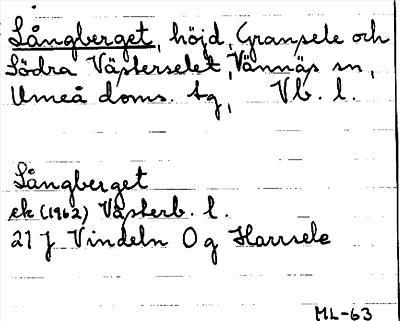 Långberget, höjd, Gransele och
Södra Västerselet, Vännäs sn,
Umeå doms. tg, Vb. l.
Långberget
ek (1962) Västerb. l.
21 J Vindeln 0 g Harrsele
ML-63